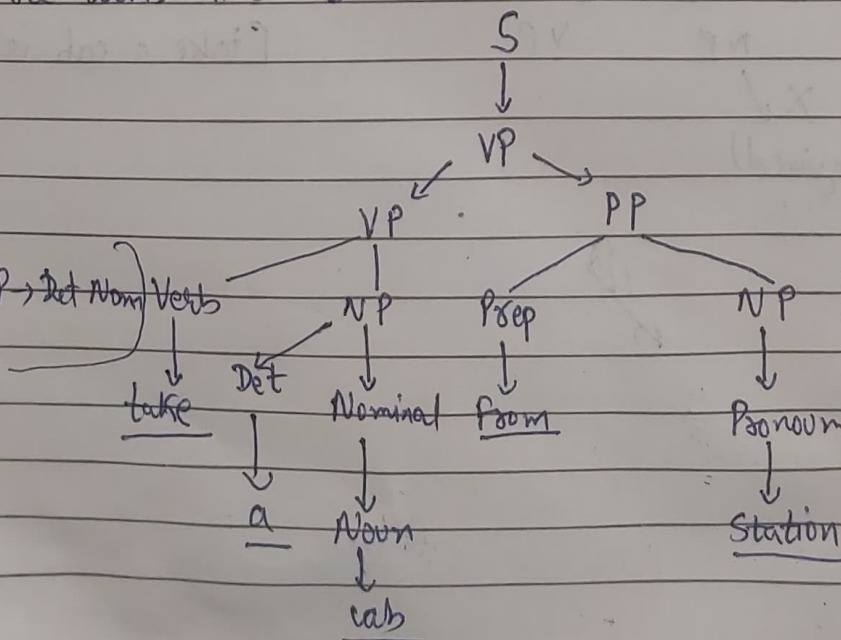 S
VP
VP PP
P → Det Nom) Verb NP Prep NP
Det
take Nominal from Pronoun
a Noun Station
cab